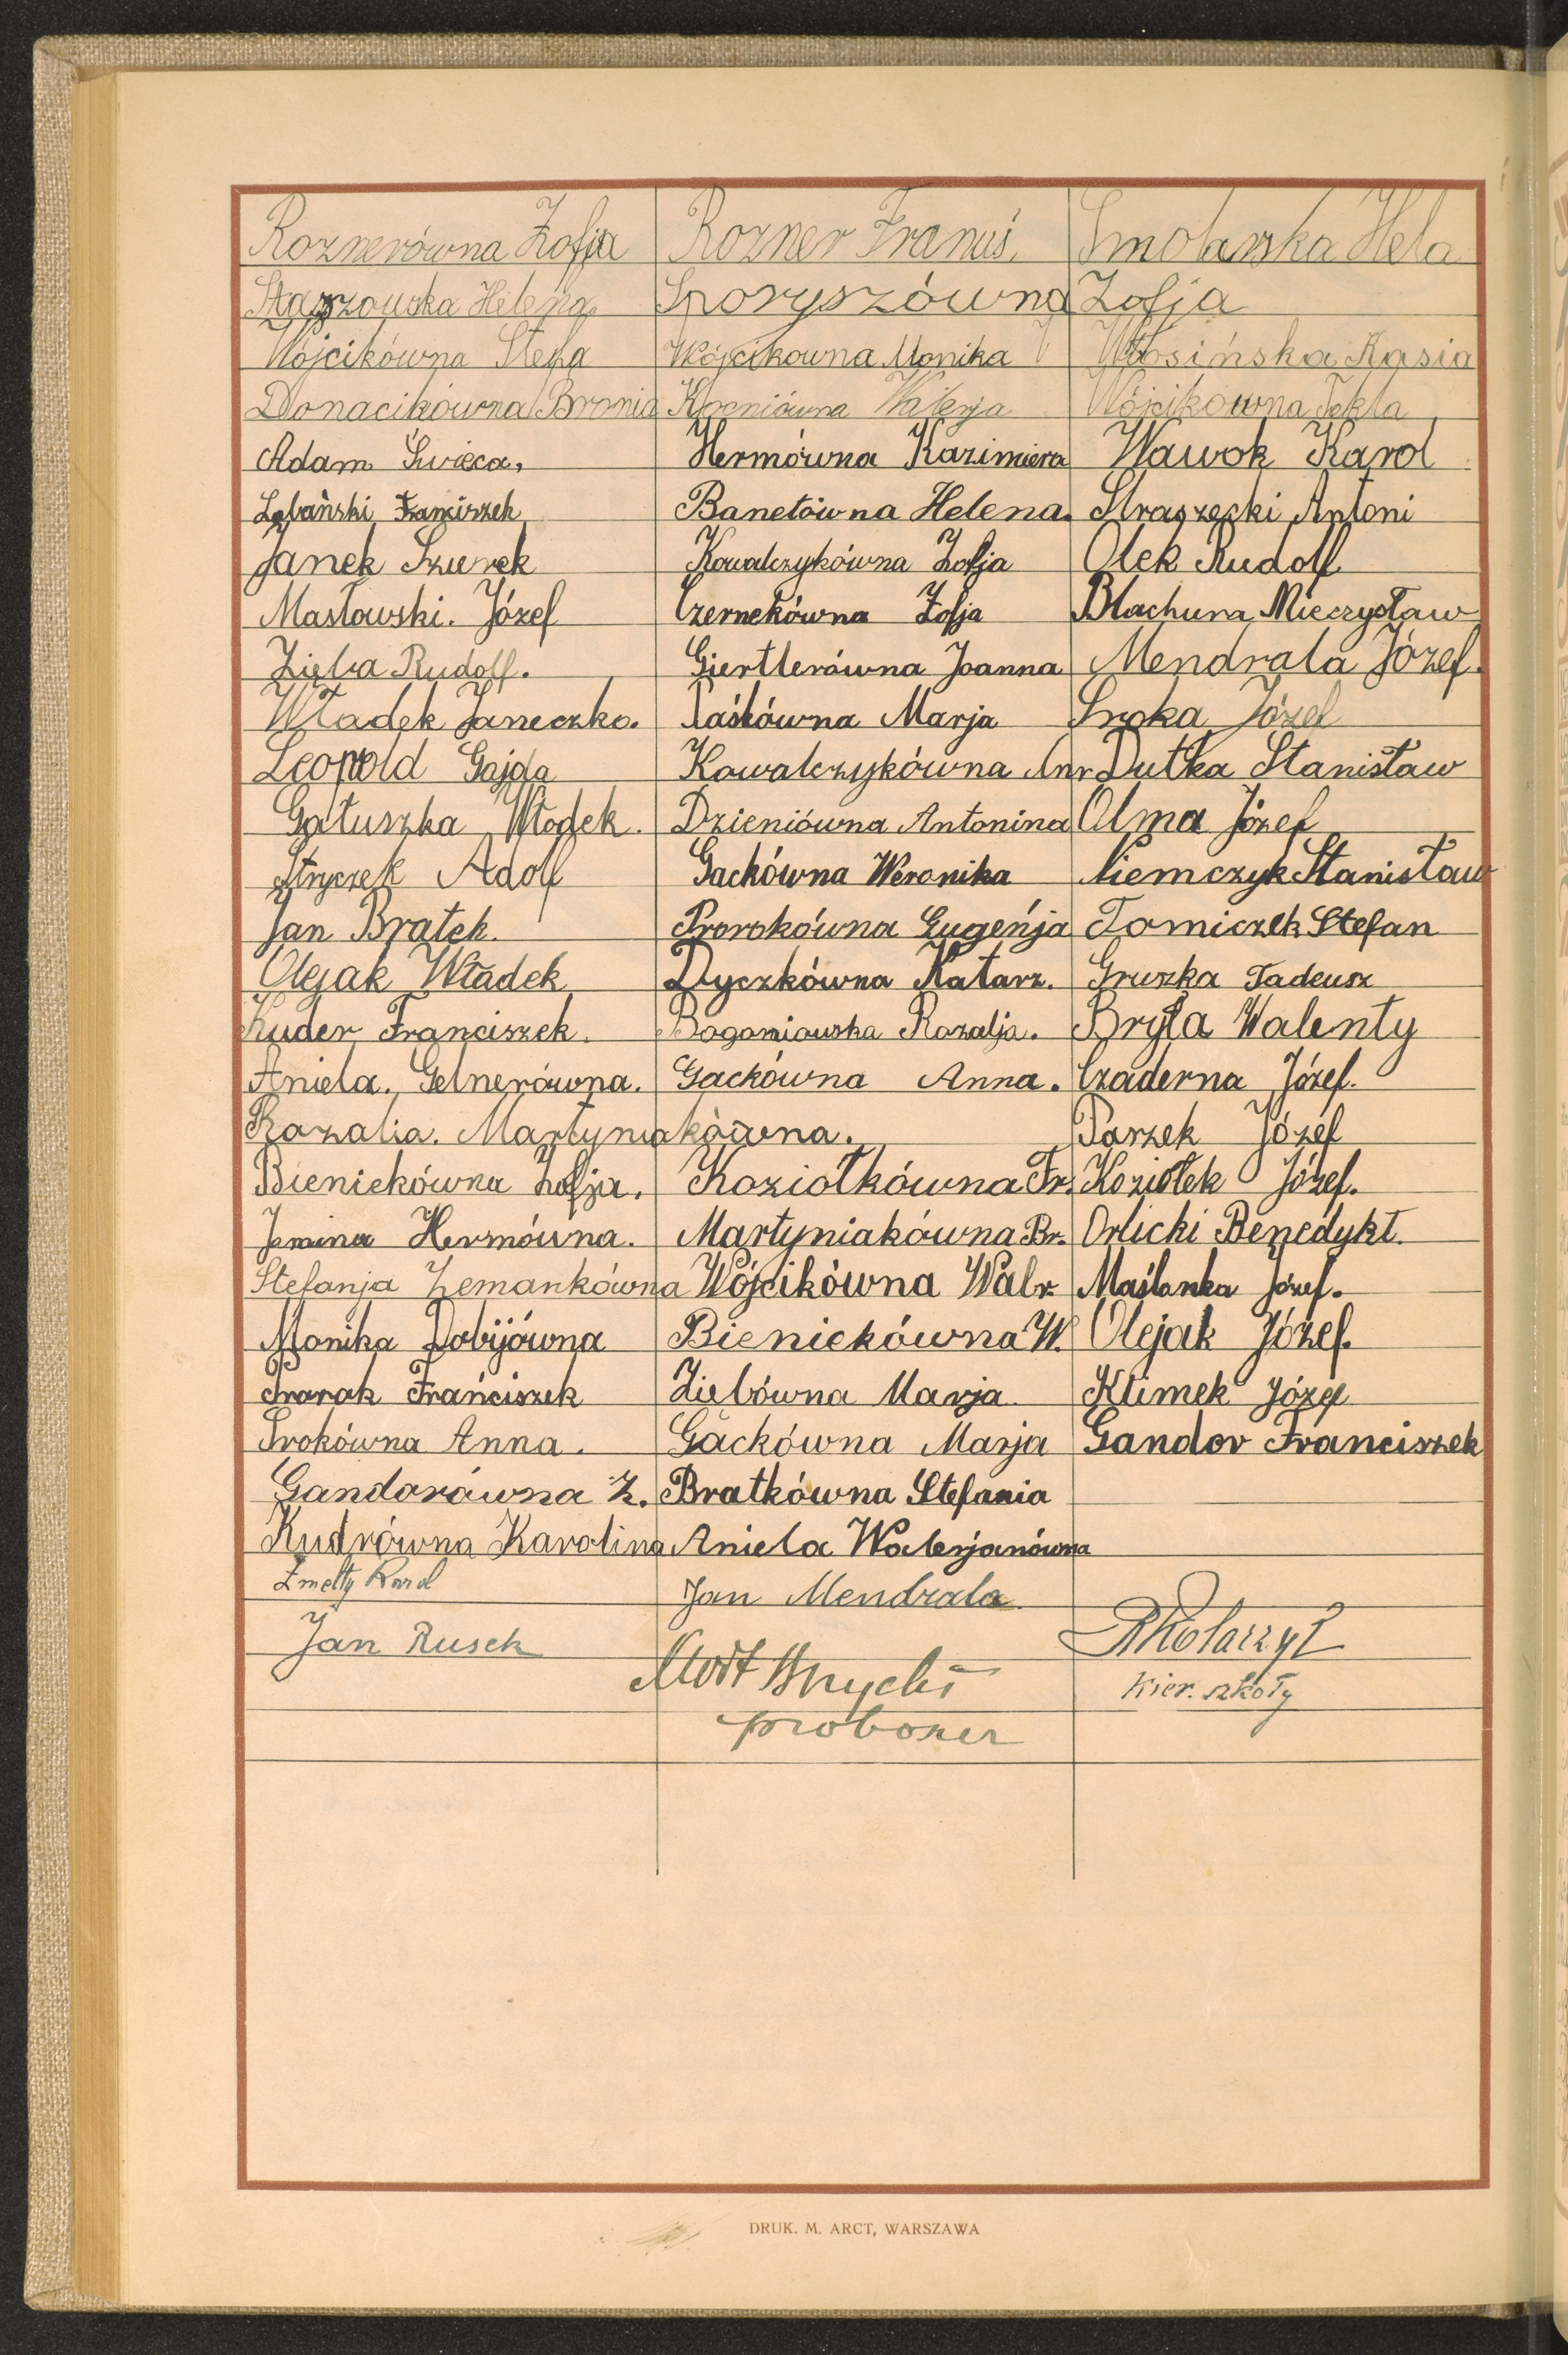 Roznerówna Zofja Rozner Franuś. Smolarska Hela
Starzowska Helena Sporyszówna Zofja
Wójcikówna Stefa Wójcikowna Monika Włosińska Kasia
Donacikówna Bronia Kocniówna Walerja Wójcikowna Tekla
Adam Święca, Hermówna Kazimiera Wawok Karol
Łabański Franciszek Banetówna Helena. Straszecki Antoni
Janek Szurek Kowalczykówna Zofja Olek Rudolf
Masłowski. Józef Czernekówna Zofja Blachura Mieczysław
Zięba Rudolf. Giertlerówna Joanna Mendrala Józef.
Władek Janeczko. Paśkówna Marja Sroka Józef
Leopold Gajda Kowalczykówna Anr Dutka Stanisław
Gałuszka Włodek. Dzieniówna Antonina Olma Józef
Stryczek Adolf Gackówna Weronika Niemczyk Stanisław
Jan Bratek. Prorokówna Eugenja Tomiczek Stefan
Olejak Władek Dyczkówna Katarz. Gruszka Tadeusz
Kuder Franciszek. Bogoniowska Rozalja. Bryła Walenty
Aniela. Gelnerówna. Gackówna Anna. Czaderna Józef.
Rozalia. Martyniakówna. Parzek Józef
Bieniekówna Zofja. Koziołkówna Fr. Koziołek Józef.
Janina Hermówna. Martyniakówna Br. Orlicki Benedykt.
Stefanja Zemankówna Wójcikówna Walr. Maślanka Józef.
Monika Dobijówna Bieniekówna W. Olejak Józef.
Prorok Franciszek Ziebówna Marja Klimek Józef
Srokówna Anna. Gackówna Marja Gandor Franciszek
Gandorówna Z. Bratkówna Stefania
Kudrówna Karolina Aniela Walerjanówna
Zmełty Karol Jan Mendrala
Jan Rusek RKolarzyk
kier. szkoły
proboszcz
DRUK. M. ARCT, WARSZAWA